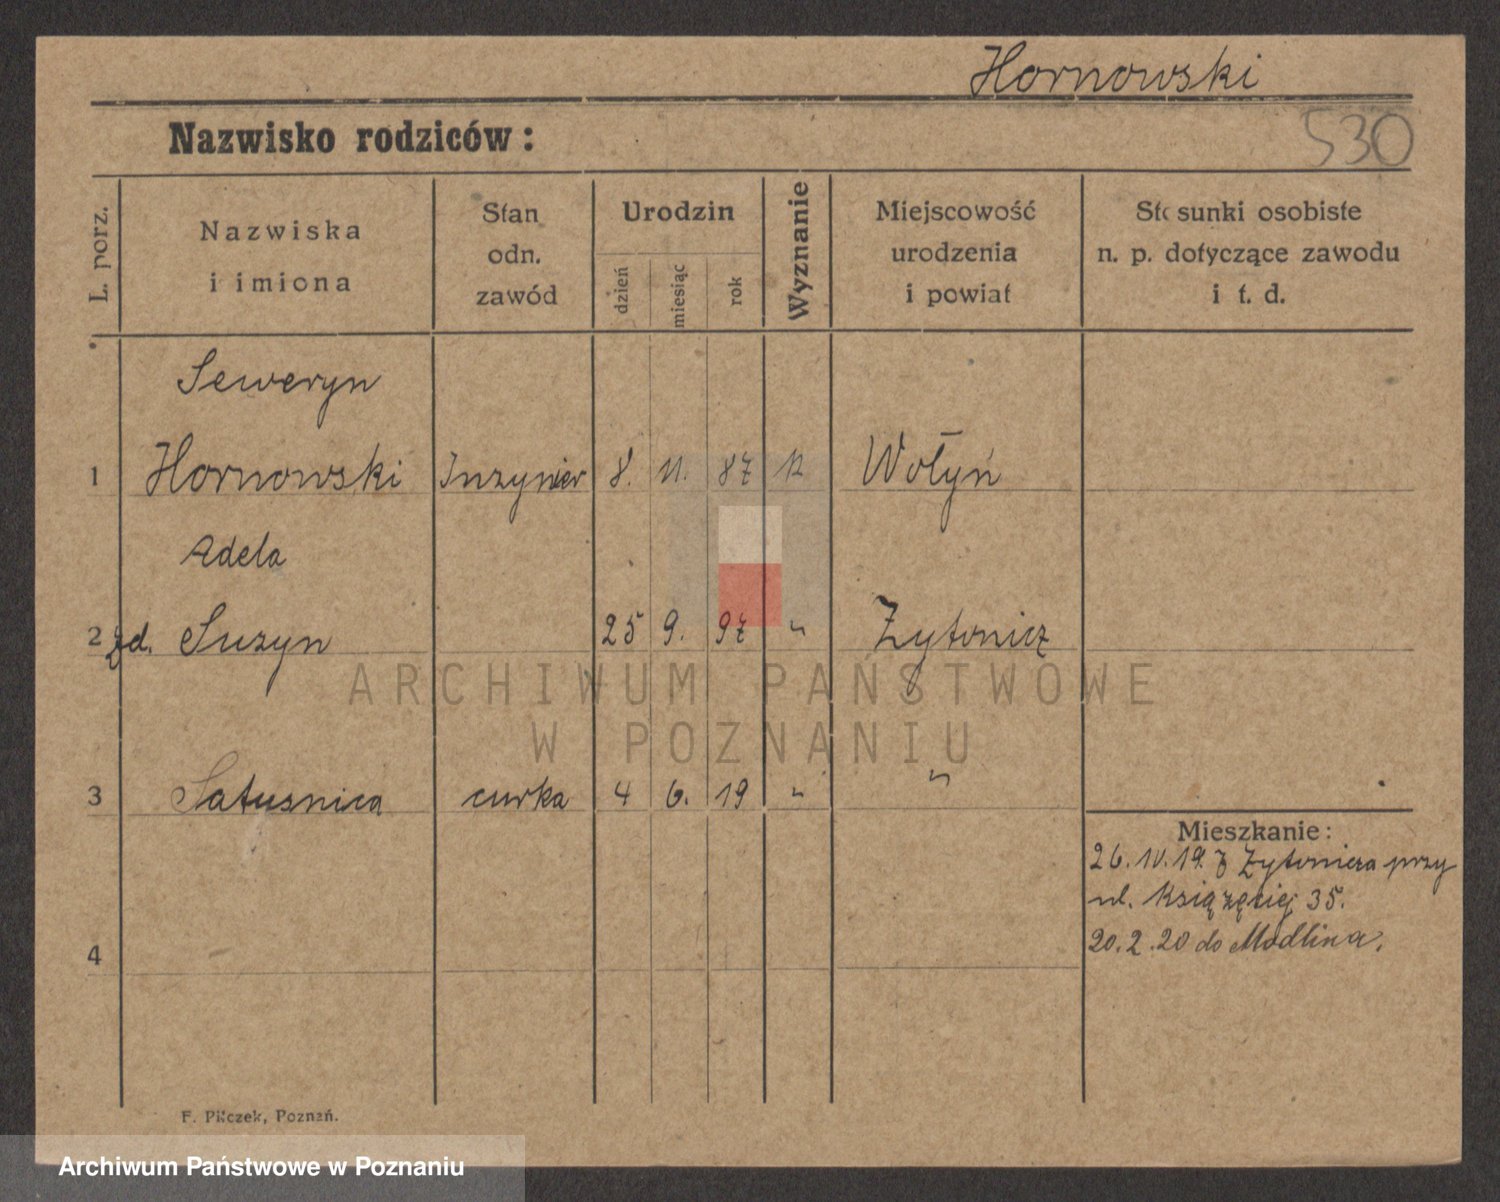 Hornowski
530
Nazwisko rodziców:
L. porz.
Nazwiska
i imiona
Stan
odn.
zawód
Urodzin
dzień
miesiąc
rok
Wyznanie
Miejscowość
urodzenia
i powiat
Stosunki osobiste
n. p. dotyczące zawodu
i t. d.
Seweryn
1 Hornowski Inzynier 8. 11. 87 Wołyń
Adela
2 zd. Suzyn 25 9. 97 " Zytonicz
3 Satusnica curka 4 6. 19 " "
4
Mieszkanie:
26.10.19. z Zytonicza przy
ul. Książęciej 35.
20.2.20 do Modlina.
F. Pilczek, Poznań.
ARCHIWUM PAŃSTWOWE
W POZNANIU
Archiwum Państwowe w Poznaniu